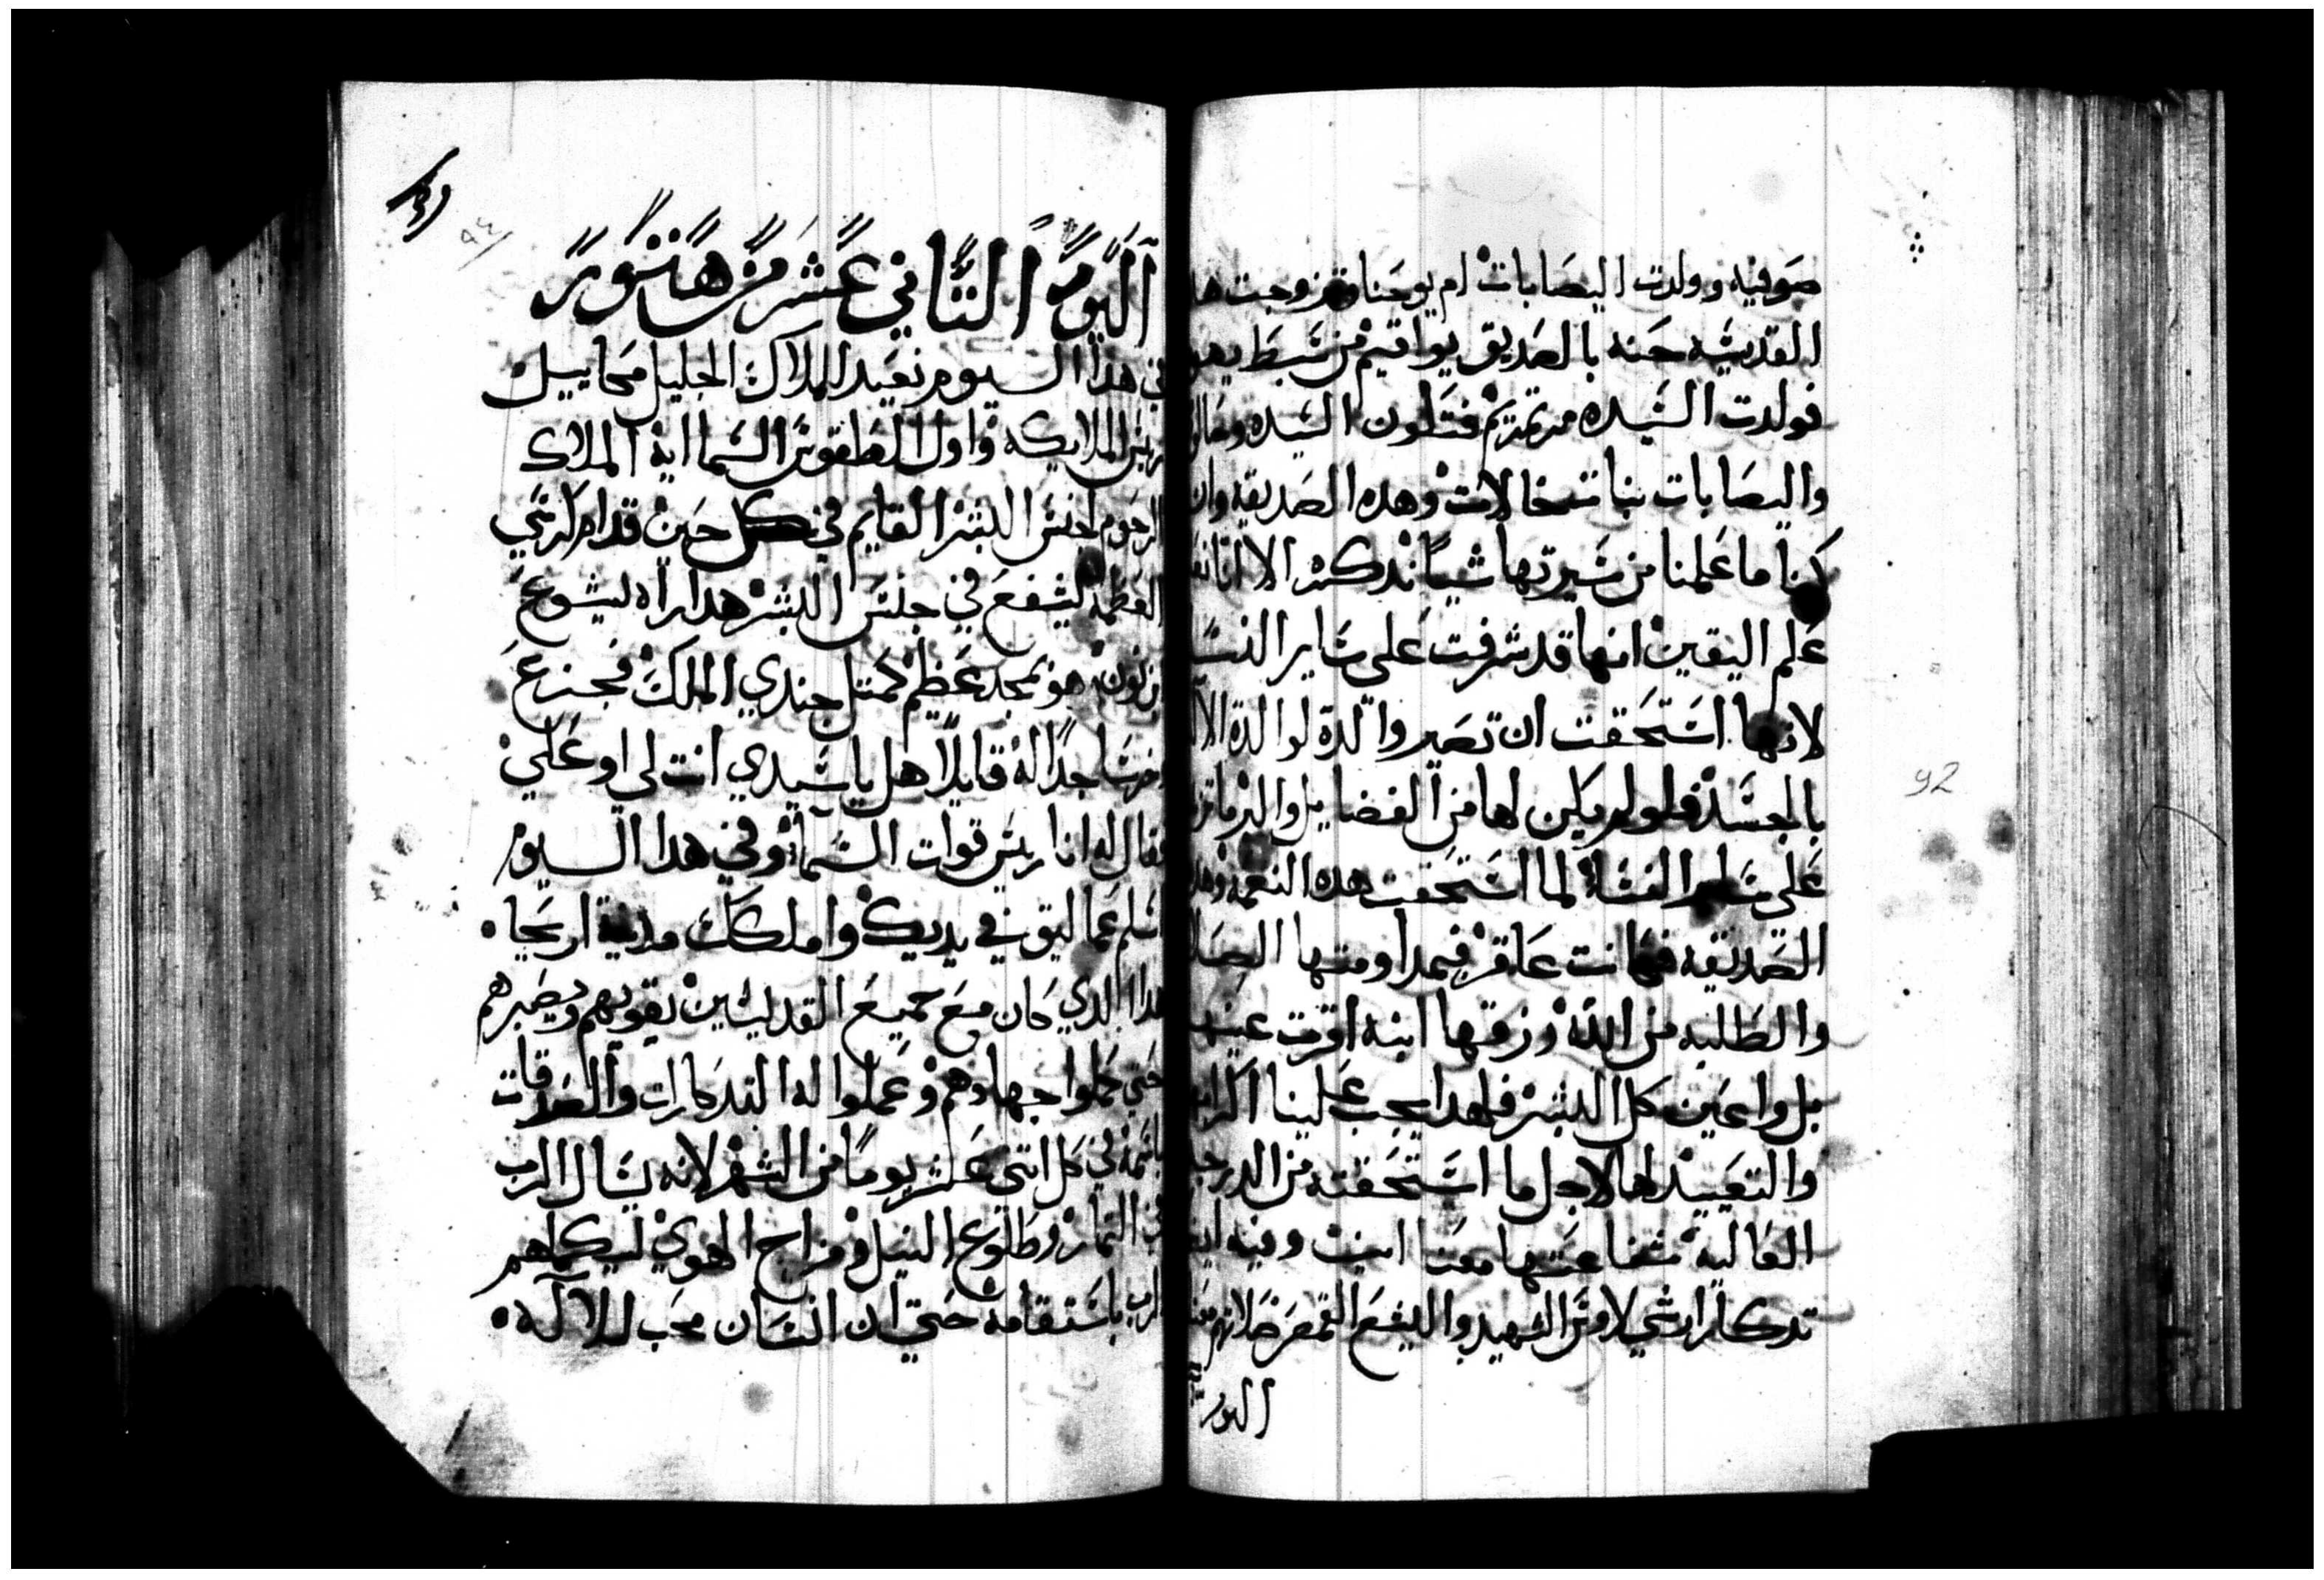 صوفيه وولدت اليصابات ام يوحنا وتزوجت هده
القديسه حنه بالصديق يواقيم من سبط يهو
فولدت السيده مرتمريم فتكون السيده وصالو
واليصابات بنات خالات وهده الصديقه وان
كنا ما علمنا من سيرتها شياً ندكره الا اننا نعـ
علم اليقين انها قد شرفت على ساير النسا
لانها استحقت ان تصير والدة لوالدة الالا
بالجسد فلو لم يكن لها من الفضايل والبر ما تز
على ساير النساء لما استحقت هده النعمه وهده
الصديقه فكانت عاقر فبمداومتها الصلا
والطلبه من الله رزقها ابنه اقرت عينها
بل واعين كل البشر فلهدا يجب علينا اكرامـ
والتعييد لها لاجل ما استحقته من الدرجه
العاليه شفاعتها معنا امين وفيه ايضا
تدكار ارشيلاوس الشهيد واليشع القمص صلاتهم معنا
اليوم
اليوم التاني عشر من هتور
في هدا اليوم نعيد للملاك الجليل ميخاييل
رييس الملايكه واول الطقوس السمايه الملاك
الرحوم لجنس البشر القايم في كل حين قدام كرسي
العظمه ليشفع في جنس البشر هدا راه ليشوع
ابن نون هو بمجد عظيم كمتل جندي الملك فجزع
وخر ساجداً له قايلاً هل ياسيدي انت لي او علي
فقال له انا رييس قوات السما وفي هدا اليوم
اسلم عماليق في يديك واملكك مدينة اريحا •
هدا الدي كان مع جميع القديسين يقويهم ويصبرهم
حتي كملوا جهادهم وعملوا له التدكارات والصدقات
باسمه في كل اتني عشر يوماً من الشهر لانه يسال الرب
في التمار وطلوع النيل ومزاج الهوي ليكملهم
الرب باستقامه حتي ان انسان محب للالاه •
92